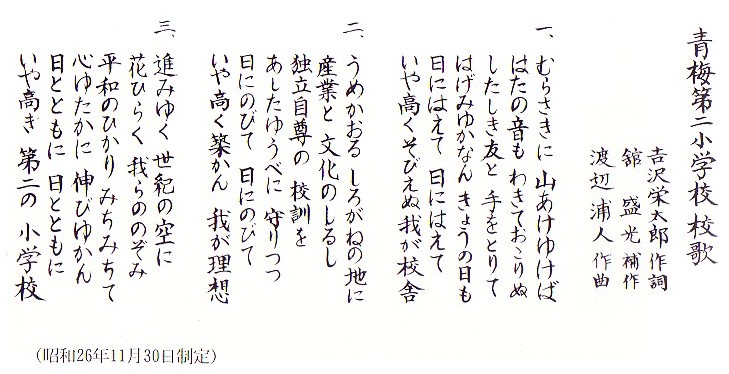 青梅第二小学校校歌
吉沢栄太郎作詞
舘盛光補作
渡辺浦人作曲
一、むらさきに 山あけゆけば
はたの音も わきておこりぬ
したしき友と 手をとりて
はげみゆかなん きょうの日も
日にはえて 日にはえて
いや高くそびえぬ我が校舎
二、うめかおる しろがねの地に
産業と 文化のしるし
独立自尊の 校訓を
あしたゆうべに 守りつつ
日にのびて 日にのびて
いや高く築かん 我が理想
三、進みゆく 世紀の空に
花ひらく 我らののぞみ
平和のひかり みちみちて
心ゆたかに 伸びゆかん
日とともに 日とともに
いや高き 第二の 小学校
(昭和26年11月30日制定)